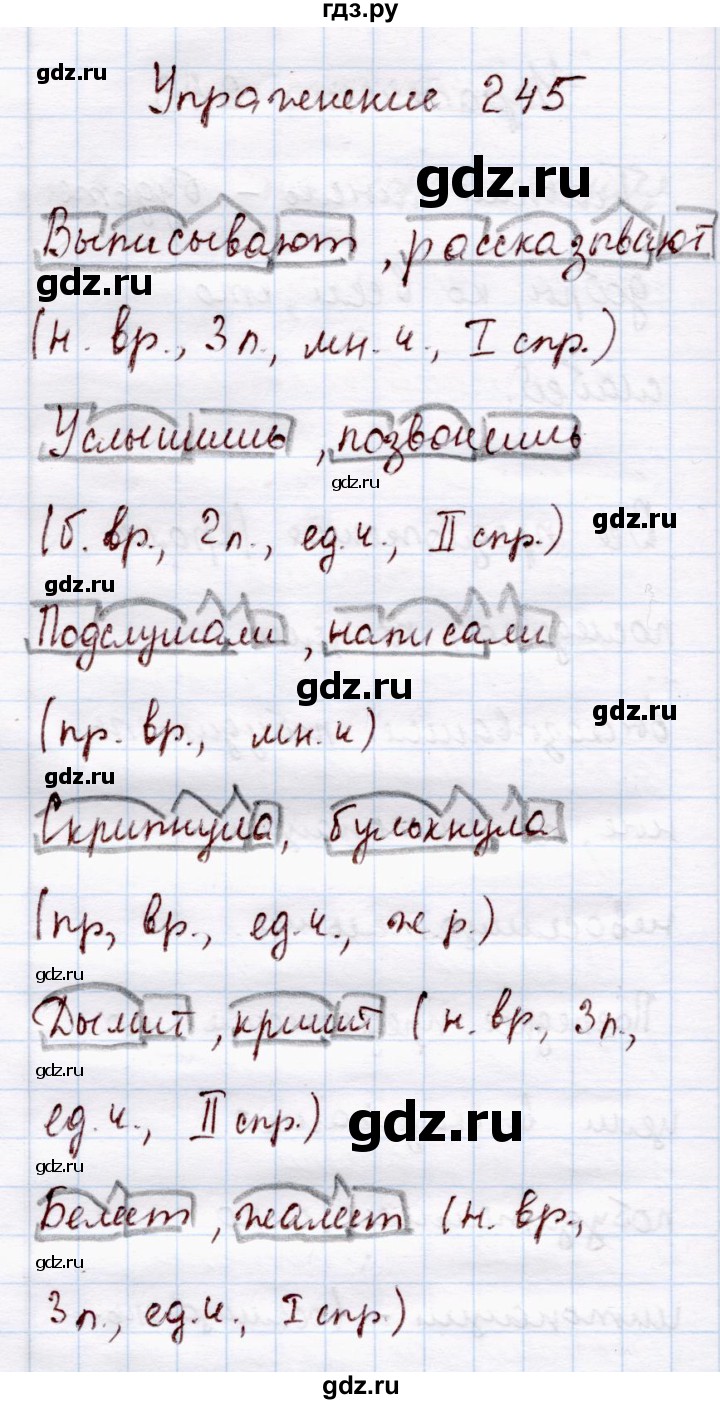 гдз.ру
gdz.ru
Упражнение 245
gdz.ru
Выписывают, рассказывают
gdz.ru
(н. вр., 3 л., мн. ч., I спр.)
Услышишь, позвонишь
gdz.ru
(б. вр., 2 л., ед. ч., II спр.)
gdz.ru
gdz.ru
Подслушали, написали
gdz.ru
(пр. вр., мн. ч)
gdz.ru
gdz.ru
Скрипнула, булькнула
(пр, вр., ед. ч., ж. р.)
gdz.ru
Дымит, кришит (н. вр., 3 л.,
gdz.ru
ед. ч., II спр.)
gdz.ru
gdz.ru
Белеет, жалеет (н. вр.,
gdz.ru
3 л., ед. ч., I спр.)
gdz.ru